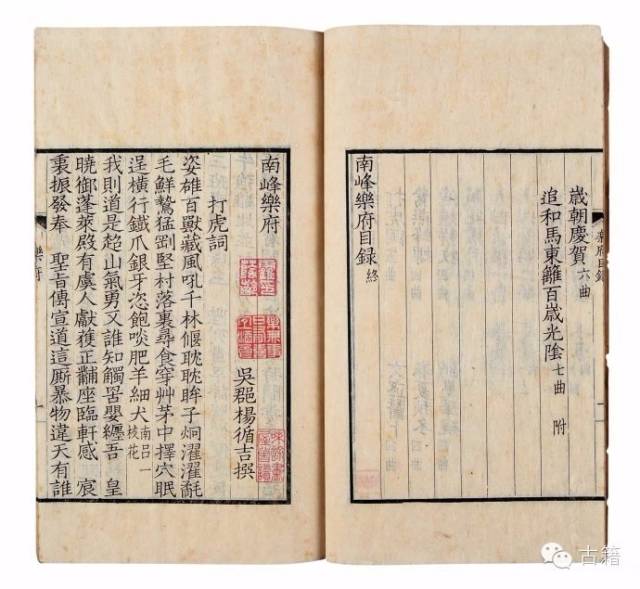 歳朝慶賀六曲
追和馬東籬百歳光陰七曲 附
南峰樂府目録終
南峰樂府
吳郡楊循吉撰
打虎詞
姿雄百獸藏風吼千林偃耽耽眸子炯濯濯
毛鮮鷙猛剛堅村落裏尋食穿茅中擇穴眠
逞横行鐵爪銀牙恣飽啖肥羊細犬南吕一枝花
我則道是山氣勇又誰知觸罟嬰纏吾 皇
曉御蓬萊殿有虞人獻獲正黼座臨軒感 宸
裏振發奉 聖旨傳宣道這厮暴物違天有誰
樂府
古籍